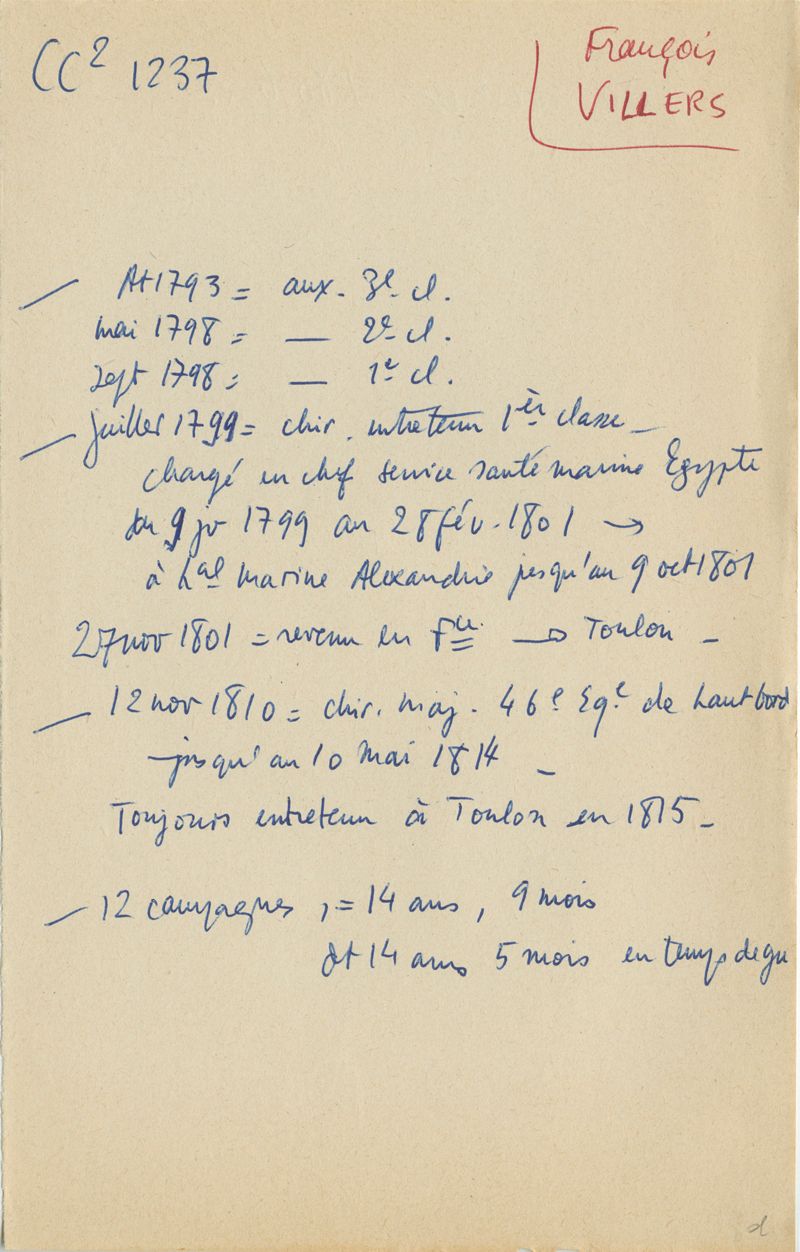 CC² 1237
François
VILLERS
At 1793 = aux. 3e cl.
mai 1798 = — 2e cl.
Sept 1798 = — 1e cl.
juillet 1799 = chir. entretenu 1ère classe —
chargé en chef service santé marine Egypte
du 9 jr 1799 au 28 fév. 1801 →
à hal marine Alexandrie jusqu'au 9 oct 1801
27 nov 1801 = revenu en Fce → Toulon —
12 nov 1810 = chir. maj. 46e Eqe de haut bord
— jusqu'au 10 mai 1814 —
Toujours entretenu à Toulon en 1815 —
12 campagnes, = 14 ans, 9 mois
dt 14 ans 5 mois en temps de gu
d